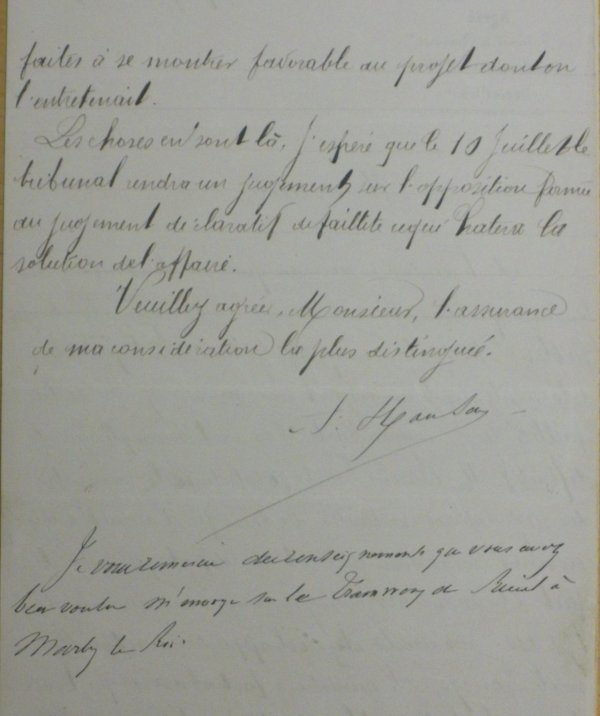 faites à se montrer favorable au projet dont on
l'entretenait.
Les choses en sont là, j'espère que le 10 Juillet le
tribunal rendra un jugement sur l'opposition formée
au jugement déclaratif de faillite ce qui hatera la
solution de l'affaire.
Veuillez agréer, Monsieur, l'assurance
de ma considération la plus distinguée.
Je vous remercie des renseignements que vous avez
bien voulu m'envoyer sur le Tramway de Rueil à
Marly le Roi.